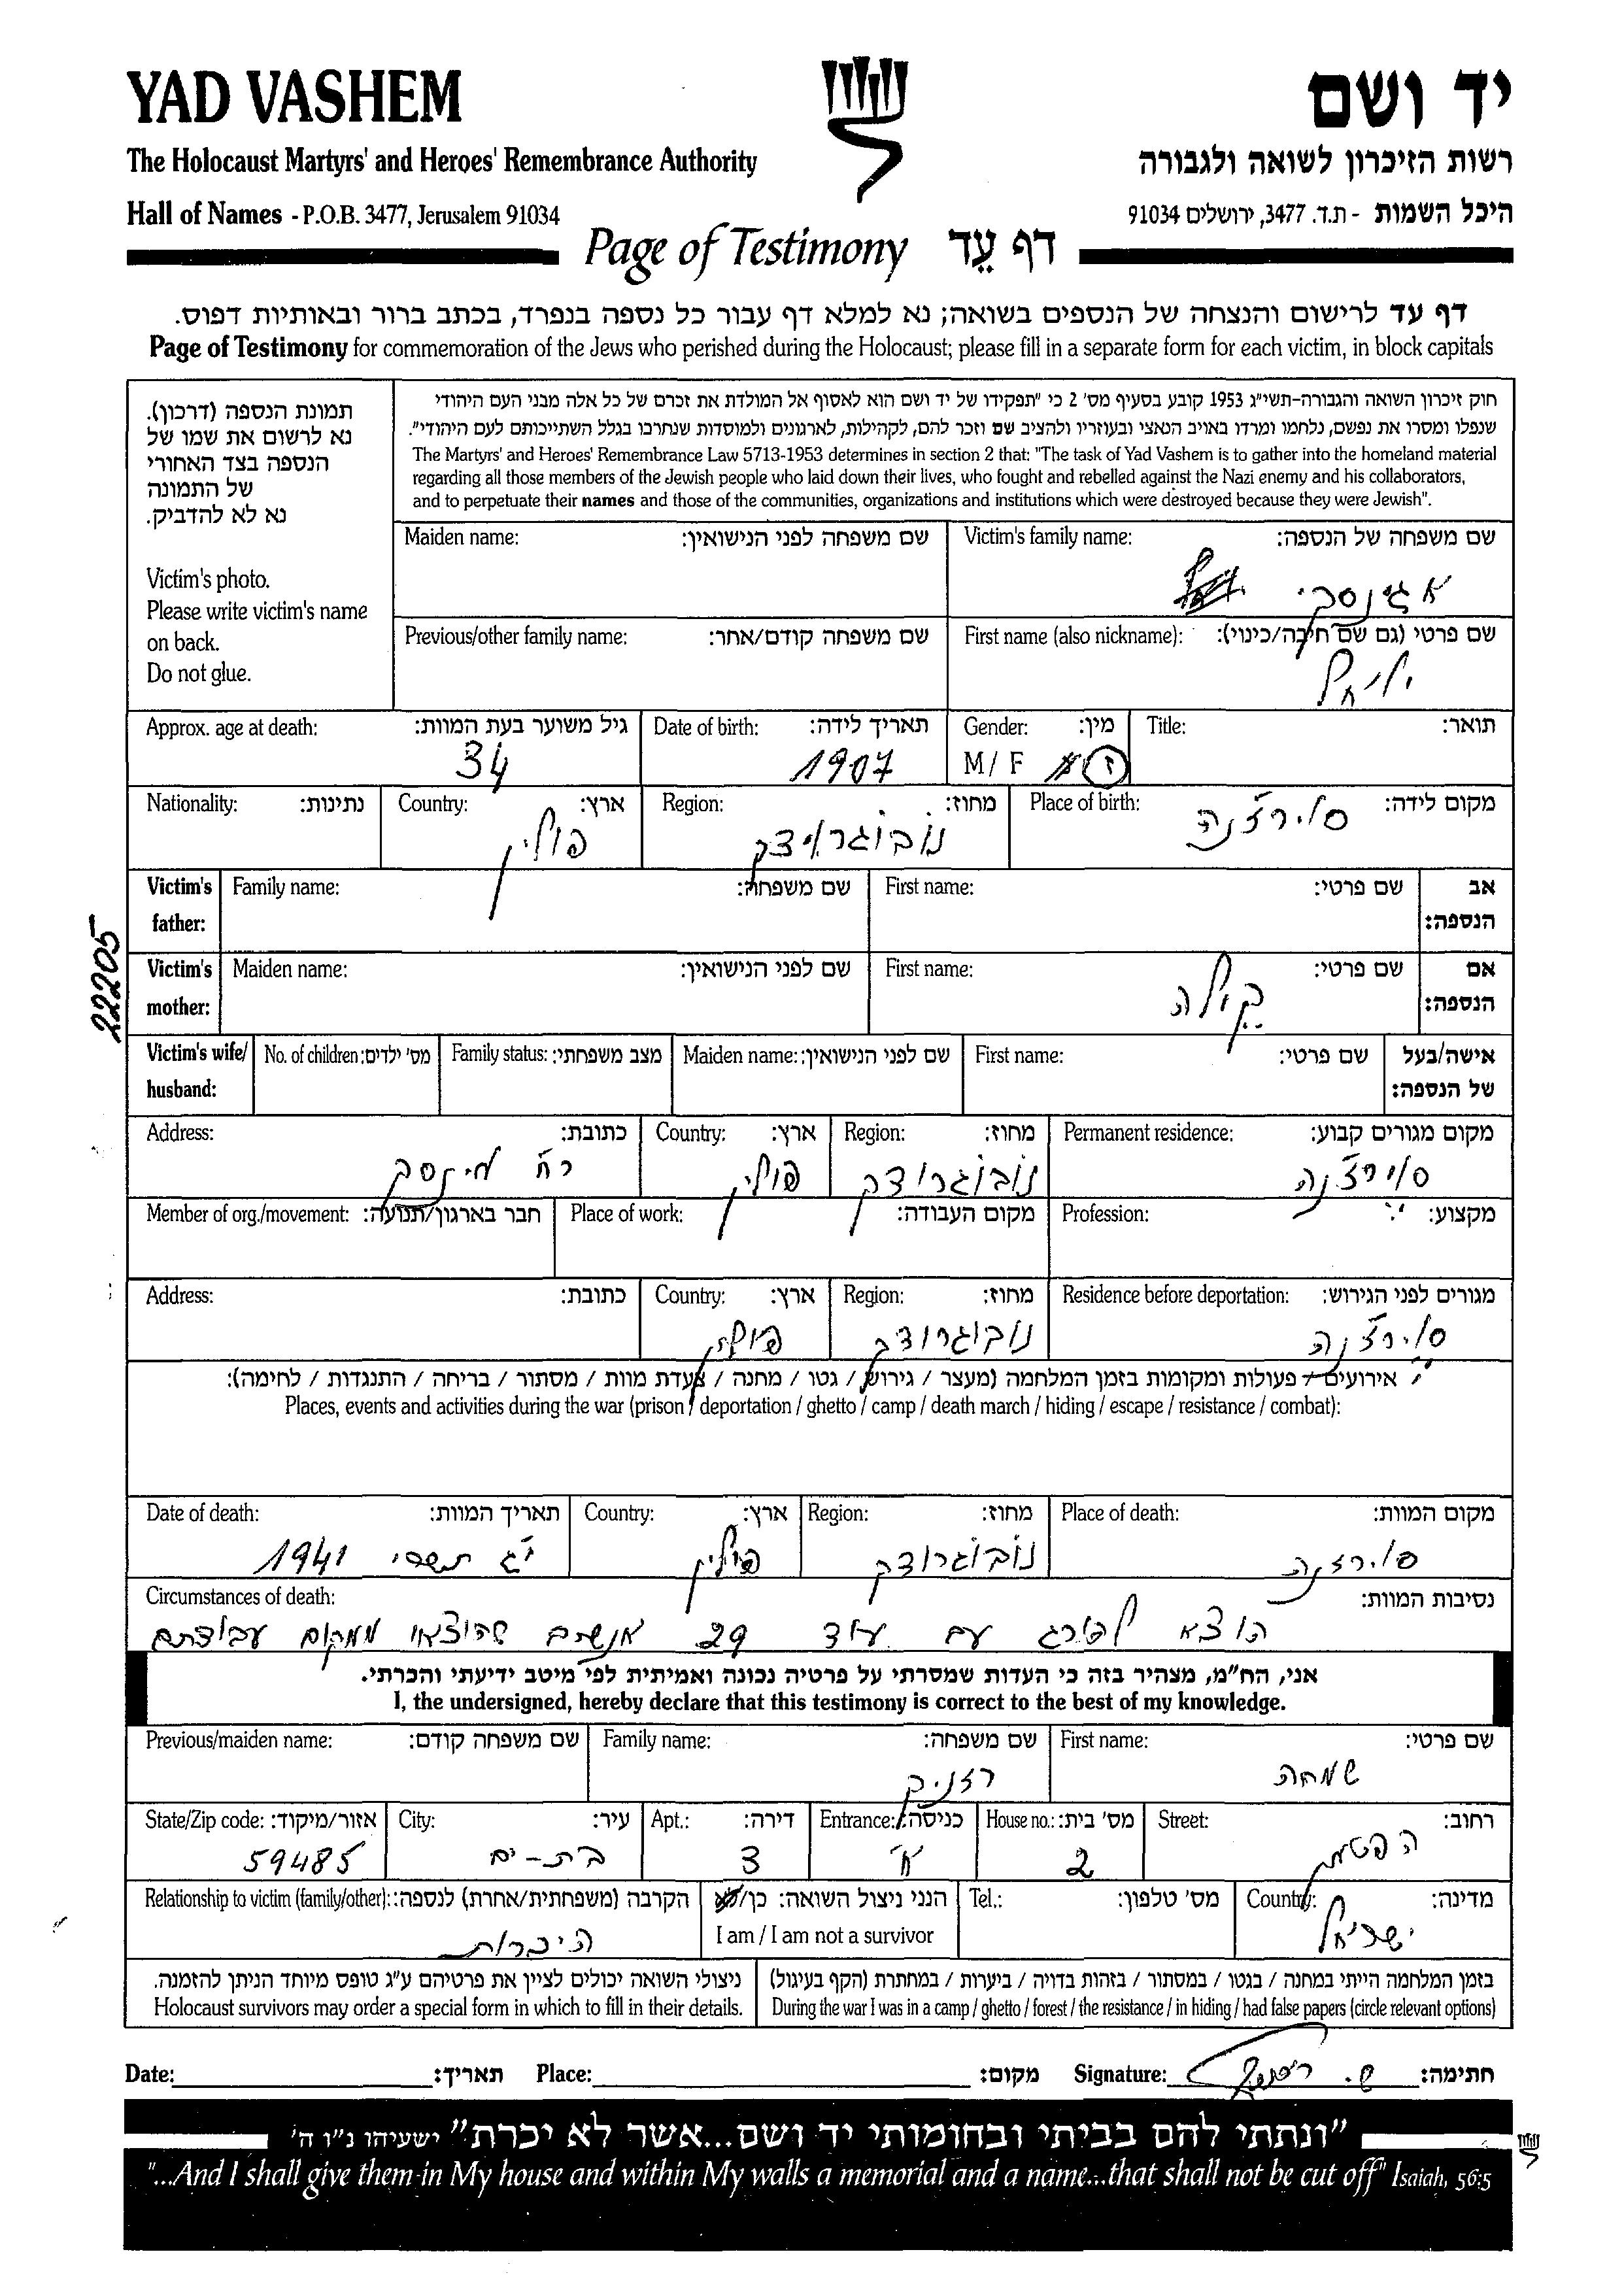 YAD VASHEM יד ושם
The Holocaust Martyrs' and Heroes' Remembrance Authority רשות הזיכרון לשואה ולגבורה
Hall of Names - P.O.B. 3477, Jerusalem 91034 היכל השמות - ת.ד. 3477, ירושלים 91034
Page of Testimony דף עֵד
דף עד לרישום והנצחה של הנספים בשואה; נא למלא דף עבור כל נספה בנפרד, בכתב ברור ובאותיות דפוס.
Page of Testimony for commemoration of the Jews who perished during the Holocaust; please fill in a separate form for each victim, in block capitals
חוק זיכרון השואה והגבורה-תשי"ג 1953 קובע בסעיף מס' 2 כי "תפקידו של יד ושם הוא לאסוף אל המולדת את זכרם של כל אלה מבני העם היהודי
שנפלו ומסרו את נפשם, נלחמו ומרדו באויב הנאצי ובעוזריו ולהציב שם וזכר להם, לקהילות, לארגונים ולמוסדות שנחרבו בגלל השתייכותם לעם היהודי".
The Martyrs' and Heroes' Remembrance Law 5713-1953 determines in section 2 that: "The task of Yad Vashem is to gather into the homeland material
regarding all those members of the Jewish people who laid down their lives, who fought and rebelled against the Nazi enemy and his collaborators,
and to perpetuate their names and those of the communities, organizations and institutions which were destroyed because they were Jewish".
תמונת הנספה (דרכון).
נא לרשום את שמו של
הנספה בצד האחורי
של התמונה
נא לא להדביק.
Victim's photo.
Please write victim's name
on back.
Do not glue.
Victim's family name: שם משפחה של הנספה:
אגינסקי
Maiden name: שם משפחה לפני הנישואין:
First name (also nickname): שם פרטי (גם שם חיבה/כינוי):
יחיאל
Previous/other family name: שם משפחה קודם/אחר:
Title: תואר:
Gender: מין:
M / F ז
Date of birth: תאריך לידה:
1907
Approx. age at death: גיל משוער בעת המוות:
34
Place of birth: מקום לידה:
סווירז'נה
Region: מחוז:
נובוגרודק
Country: ארץ:
פולין
Nationality: נתינות:
Victim's father: אב הנספה:
First name: שם פרטי:
Family name: שם משפחה:
Victim's mother: אם הנספה:
First name: שם פרטי:
קיילה
Maiden name: שם לפני הנישואין:
Victim's wife/husband: אישה/בעל של הנספה:
First name: שם פרטי:
Maiden name: שם לפני הנישואין:
Family status: מצב משפחתי:
No. of children: מס' ילדים:
Permanent residence: מקום מגורים קבוע:
סווירז'נה
Region: מחוז:
נובוגרודק
Country: ארץ:
פולין
Address: כתובת:
רח' מינסק
Profession: מקצוע:
Place of work: מקום העבודה:
Member of org./movement: חבר בארגון/תנועה:
Residence before deportation: מגורים לפני הגירוש:
סווירז'נה
Region: מחוז:
נובוגרודק
Country: ארץ:
פולין
Address: כתובת:
אירועים / פעולות ומקומות בזמן המלחמה (מעצר / גירוש / גטו / מחנה / צעדת מוות / מסתור / בריחה / התנגדות / לחימה):
Places, events and activities during the war (prison / deportation / ghetto / camp / death march / hiding / escape / resistance / combat):
Place of death: מקום המוות:
סווירזנה
Region: מחוז:
נובוגרודק
Country: ארץ:
פולין
Date of death: תאריך המוות:
י"ג תשרי 1941
Circumstances of death: נסיבות המוות:
הוצא להורג עם עוד 29 אנשים שהוצאו ממקום עבודתם
אני, הח"מ, מצהיר בזה כי העדות שמסרתי על פרטיה נכונה ואמיתית לפי מיטב ידיעתי והכרתי.
I, the undersigned, hereby declare that this testimony is correct to the best of my knowledge.
First name: שם פרטי:
שמחה
Family name: שם משפחה:
רזניק
Previous/maiden name: שם משפחה קודם:
Street: רחוב:
House no.: מס' בית:
2
Entrance: כניסה:
א'
Apt.: דירה:
3
City: עיר:
בת-ים
State/Zip code: אזור/מיקוד:
59485
Country: מדינה:
ישראל
Tel.: מס' טלפון:
הנני ניצול השואה: כן/לא
I am / I am not a survivor
Relationship to victim (family/other): הקרבה (משפחתית/אחרת) לנספה:
היכרות
בזמן המלחמה הייתי במחנה / בגטו / במסתור / בזהות בדויה / ביערות / במחתרת (הקף בעיגול)
During the war I was in a camp / ghetto / forest / the resistance / in hiding / had false papers (circle relevant options)
ניצולי השואה יכולים לציין את פרטיהם ע"ג טופס מיוחד הניתן להזמנה.
Holocaust survivors may order a special form in which to fill in their details.
Date: תאריך: Place: מקום: Signature: חתימה:
"ונתתי להם בביתי ובחומותי יד ושם...אשר לא יכרת" ישעיהו נ"ו ה'
"...And I shall give them in My house and within My walls a memorial and a name...that shall not be cut off" Isaiah, 56:5
22205